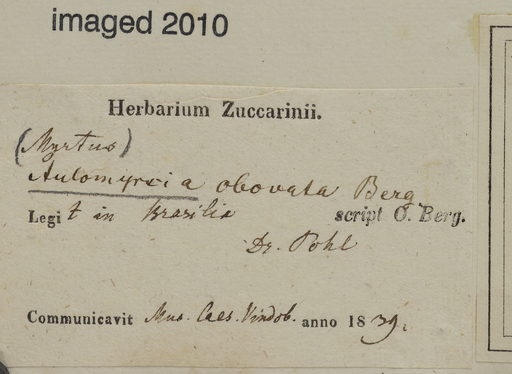 imaged 2010
Herbarium Zuccarinii.
(Myrtus)
Aulomyrcia obovata Berg
Legit in Brasilia script O. Berg.
Dr. Pohl
Communicavit Mus. Caes. Vindob. anno 1839.